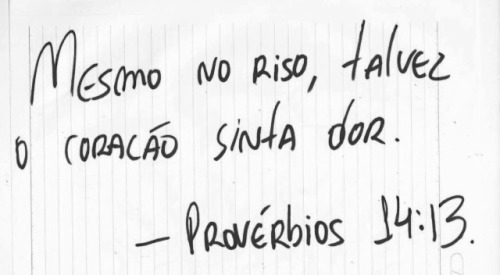 Mesmo no riso, talvez
o coração sinta dor.
— Provérbios 14:13.